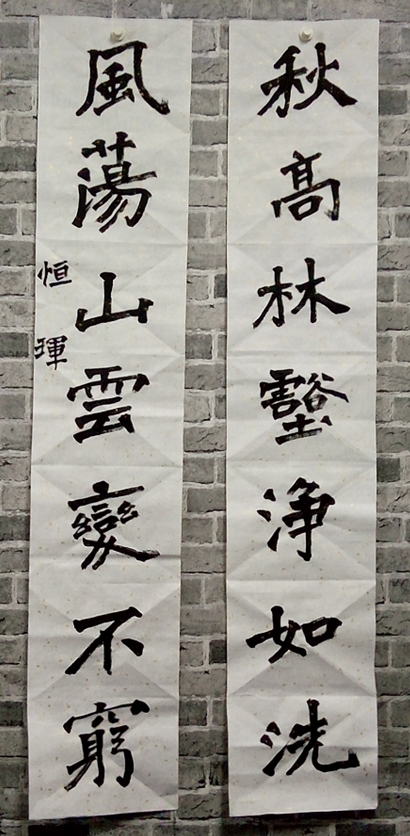 秋高林壑淨如洗
風蕩山雲變不窮
恒琿